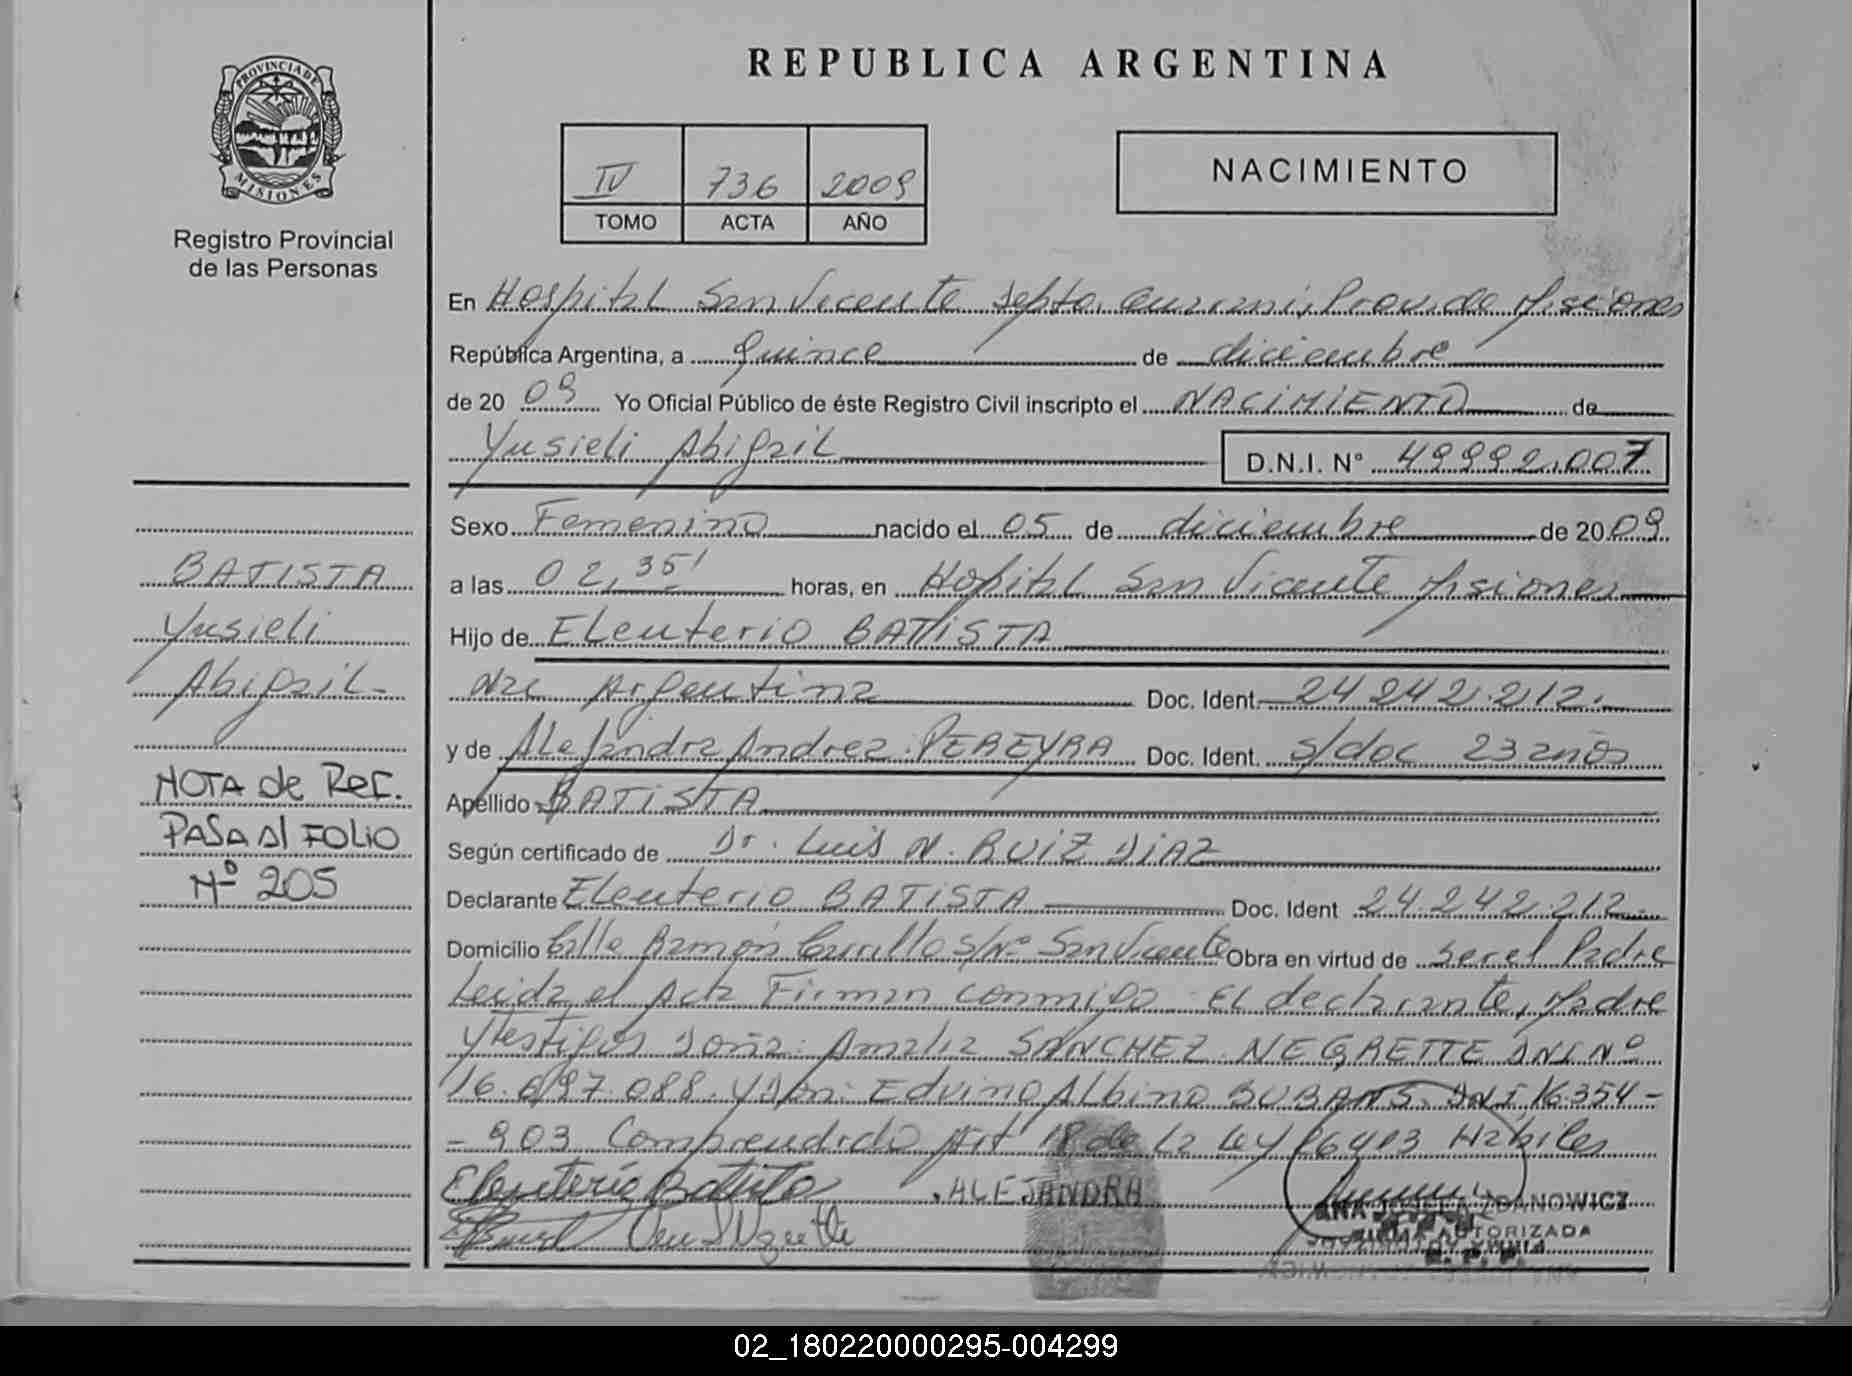 PROVINCIA DE
MISIONES
Registro Provincial
de las Personas
BATISTA
Yusieli
Abigail-
NOTA de REF.
PASA Al FOLIO
Nº 205
REPUBLICA ARGENTINA
IV 736 2009
TOMO ACTA AÑO
NACIMIENTO
En Hospital San Vicente Depto. Guarani, Prov. de Misiones
República Argentina, a quince de diciembre
de 20 09 Yo Oficial Público de éste Registro Civil inscripto el NACIMIENTO de
Yusieli Abigail D.N.I. N° 49992.007
Sexo Femenino nacido el 05 de diciembre de 20 09
a las 02,35' horas, en Hospital San Vicente Misiones
Hijo de Eleuterio BATISTA
Nac Argentina Doc. Ident. 24 242.212.
y de Alejandra Andrea PEREYRA Doc. Ident. s/doc 23 años
Apellido BATISTA
Según certificado de Dr. Luis N. RUIZ DIAZ
Declarante Eleuterio BATISTA Doc. Ident 24.242.212.-
Domicilio Calle Ramón Carrillo S/Nº San Vicente Obra en virtud de ser el Padre
Leida el Acta Firman conmigo El declarante, Madre
y testigos Doña: Amalia SANCHEZ NEGRETTE DNI Nº
16.697.088. y Don: Edvino Albino DNI 16.354-
-903 Comprendido Art 18 de La Ley 26413 Habiles
Eleuterio Batista .ALEJANDRA
ANA JOSEFA ZDANOWICZ
FIRMA AUTORIZADA
R. P. P.
02_180220000295-004299